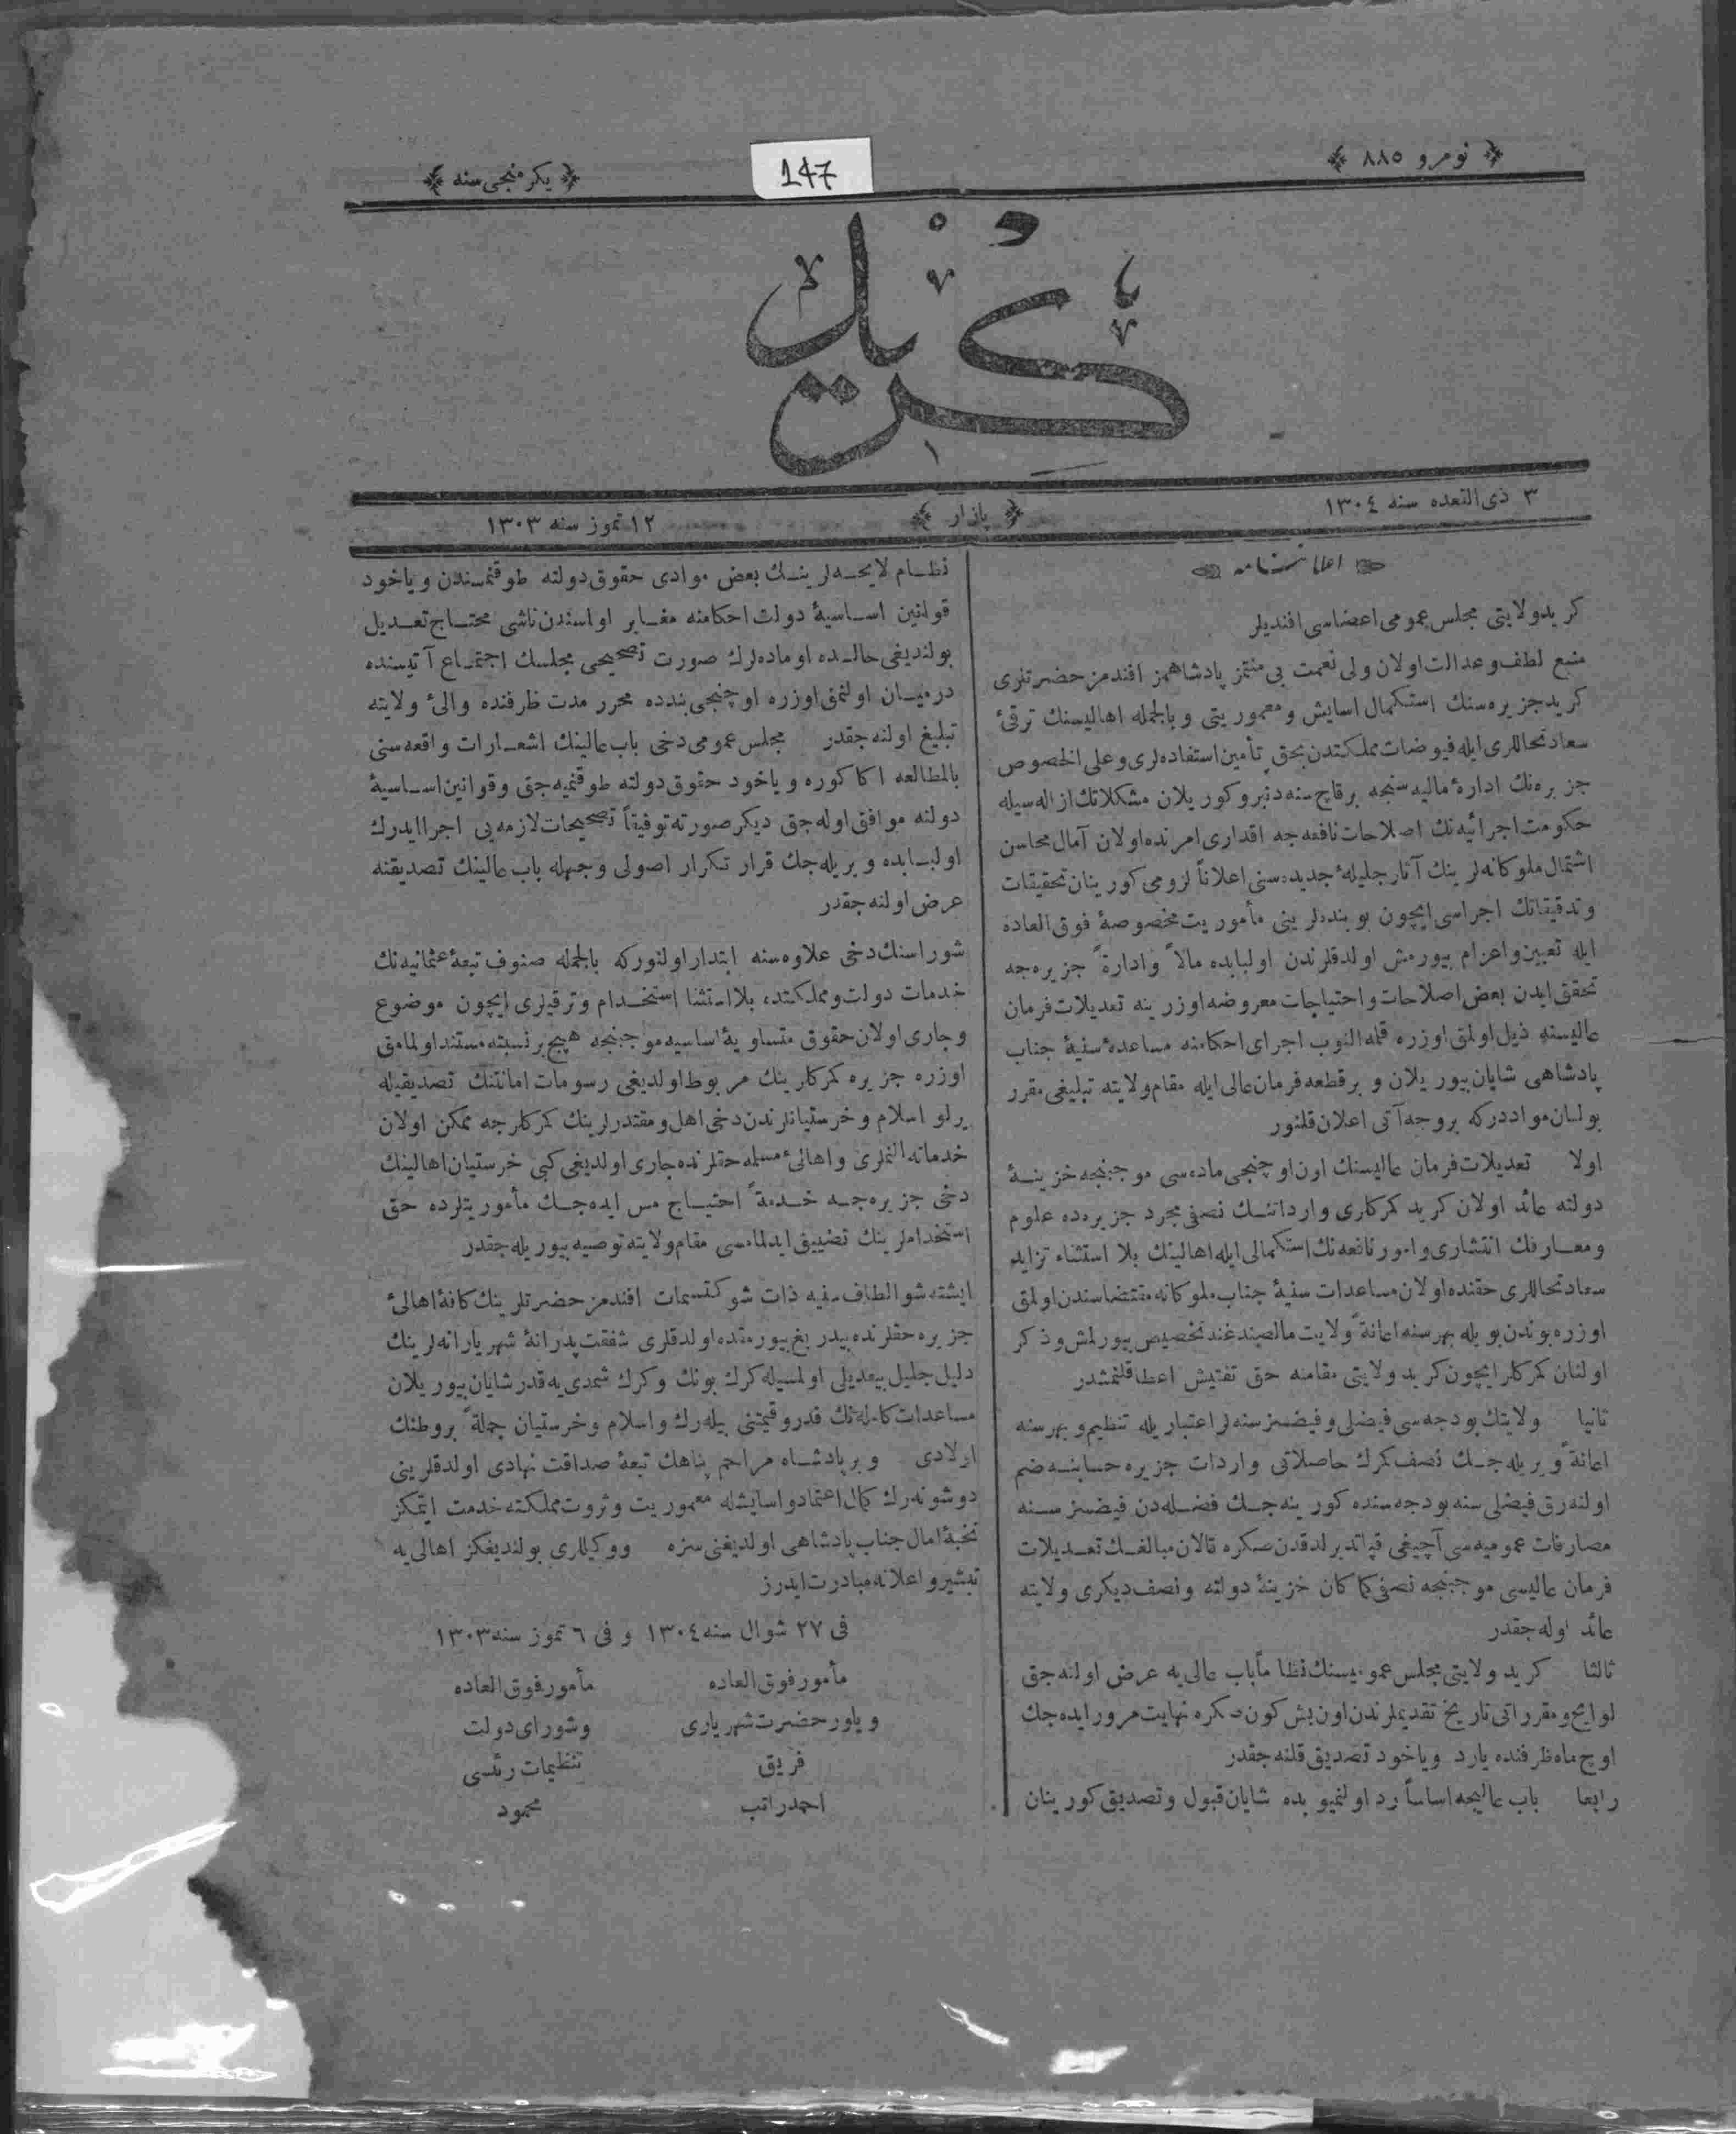 ﴿ نومرو ٨٨٥ ﴾
147
﴿ یکرمنجی سنه ﴾
کرید
٣ ذی القعده سنه ١٣٠٤
﴿ پازار ﴾
١٢ تموز سنه ١٣٠٣
اعلاننامه
کرید ولایتی مجلس عمومی اعضاسی افندیلر
منبع لطف و عدالت اولان ولی نعمت بی منتمز پادشاهمز افندمز حضرتلری
کرید جزیره‌سنك استکمال اسایش و معموریتی و بالجمله اهالیسنك ترقیٔ
سعادتحاللری ایله فیوضات مملکتدن بحق تأمین استفاده‌لری و علی الخصوص
جزیره‌نك ادارهٔ مالیه‌سنجه برقاچ سنه‌دنبرو کوریلان مشکلاتك ازاله‌سیله
حکومت اجرائیه‌نك اصلاحات نافعه‌جه اقداری امرنده اولان آمال محاسن
اشتمال ملوکانه‌لرینك آثار جلیلهٔ جدیده‌سنی اعلاناً لزومی کورینان تحقیقات
و تدقیقاتك اجراسی ایچون بو بنده‌لرینی مأموریت مخصوصهٔ فوق العاده
ایله تعیین و اعزام بیورمش اولدقلرندن اولبابده مالاً و ادارةً جزیره‌جه
تحقق ایدن بعض اصلاحات و احتیاجات معروضه اوزرینه تعدیلات فرمان
عالیسنه ذیل اولمق اوزره قلمه النوب اجرای احکامنه مساعدهٔ سنیهٔ جناب
پادشاهی شایان بیوریلان و برقطعه فرمان عالی ایله مقام ولایته تبلیغی مقرر
بولنان مواددرکه بروجه آتی اعلان قلنور
اولا تعدیلات فرمان عالیسنك اون اوچنجی ماده‌سی موجبنجه خزینهٔ
دولته عائد اولان کرید کمرکلری وارداتنك نصفی مجرد جزیره‌ده علوم
و معارفك انتشاری و امور نافعه‌نك استکمالی ایله اهالینك بلا استثناء تزاید
سعادتحاللری حقنده اولان مساعدات سنیهٔ جناب ملوکانه مقتضاسندن اولمق
اوزره بوندن بویله بهر سنه اعانةً ولایت مالصندغنه تخصیص بیورلمش و ذکر
اولنان کمرکلر ایچون کرید ولایتی مقامنه حق تفتیش اعطا قلنمشدر
ثانیا ولایتك بودجه‌سی فیضلی و فیضسز سنه‌لر اعتباریله تنظیم و بهر سنه
اعانةً ویریله‌جك نصف کمرك حاصلاتی واردات جزیره حسابنه ضم
اولنه‌رق فیضلی سنه بودجه‌سنده کورینه‌جك فضله‌دن فیضسز سنه
مصارفات عمومیه‌سی آچیغی قپاتدیرلدقدن صکره قالان مبالغك تعدیلات
فرمان عالیسی موجبنجه نصفی کماکان خزینهٔ دولته و نصف دیکری ولایته
عائد اوله‌جقدر
ثالثا کرید ولایتی مجلس عمومیسنك نظاماً باب عالی‌یه عرض اولنه‌جق
لوایح و مقرراتی تاریخ تقدیملرندن اون بش کون صکره نهایت مرور ایده‌جك
اوچ ماه ظرفنده یا رد و یاخود تصدیق قلنه‌جقدر
رابعا باب عالیجه اساساً رد اولنمیوبده شایان قبول و تصدیق کورینان
نظام لایحه‌لرینك بعض موادی حقوق دولته طوقنمسندن و یاخود
قوانین اساسیهٔ دولت احکامنه مغایر اولسندن ناشی محتاج تعدیل
بولندیغی حالده او ماده‌لرك صورت تصحیحی مجلسك اجتماع آتیسنده
درمیان اولنمق اوزره اوچنجی بندده محرر مدت ظرفنده والیٔ ولایته
تبلیغ اولنه‌جقدر مجلس عمومی دخی باب عالینك اشعارات واقعه‌سنی
بالمطالعه اکا کوره و یاخود حقوق دولته طوقنمیه‌جق و قوانین اساسیهٔ
دولته موافق اوله‌جق دیکر صورته توفیقاً تصحیحات لازمه‌یی اجرا ایدرك
اولبابده ویریله‌جك قرار تکرار اصولی وجهله باب عالینك تصدیقنه
عرض اولنه‌جقدر
شوراسنك دخی علاوه‌سنه ابتدار اولنورکه بالجمله صنوف تبعهٔ عثمانیه‌نك
خدمات دولت و مملکتده بلا استثنا استخدام و ترقیلری ایچون موضوع
و جاری اولان حقوق متساویهٔ اساسیه موجبنجه هیچ بر نسبته مستند اولمامق
اوزره جزیره کمرکلرینك مربوط اولدیغی رسومات امانتنك تصدیقیله
یرلو اسلام و خرستیانلرندن دخی اهل و مقتدرلرینك کمرکلرجه ممکن اولان
خدماته النملری و اهالیٔ مسلمه حقلرنده جاری اولدیغی کبی خرستیان اهالینك
دخی جزیره‌جه خدمةً احتیاج مس ایده‌جك مأموریتلرده حق
استخداملرینك تضییق ایدلمامسی مقام ولایته توصیه بیوریله‌جقدر
ایشته شو الطاف سنیه ذات شوکتسمات افندمز حضرتلرینك کافهٔ اهالیٔ
جزیره حقلرنده بیدریغ بیورمقده اولدقلری شفقت پدرانهٔ شهریارانه‌لرینك
دلیل جلیل بیعدیلی اولمسیله کرك بونك و کرك شمدی‌یه قدر شایان بیوریلان
مساعدات کامله‌نك قدر و قیمتنی بیله‌رك و اسلام و خرستیان جملةً بر وطنك
اولادی و بر پادشاه مراحم پناهك تبعهٔ صداقت نهادی اولدقلرینی
دوشونه‌رك کمال اعتماد و اسایشله معموریت و ثروت مملکته خدمت ایتمکز
نخبهٔ امال جناب پادشاهی اولدیغنی سزه و وکیللری بولندیغکز اهالی‌یه
تبشیر و اعلانه مبادرت ایدرز
فی ٢٧ شوال سنه ١٣٠٤ و فی ٦ تموز سنه ١٣٠٣
مأمور فوق العاده
و یاور حضرت شهریاری
فریق
احمد راتب
مأمور فوق العاده
و شورای دولت
تنظیمات رئسی
محمود